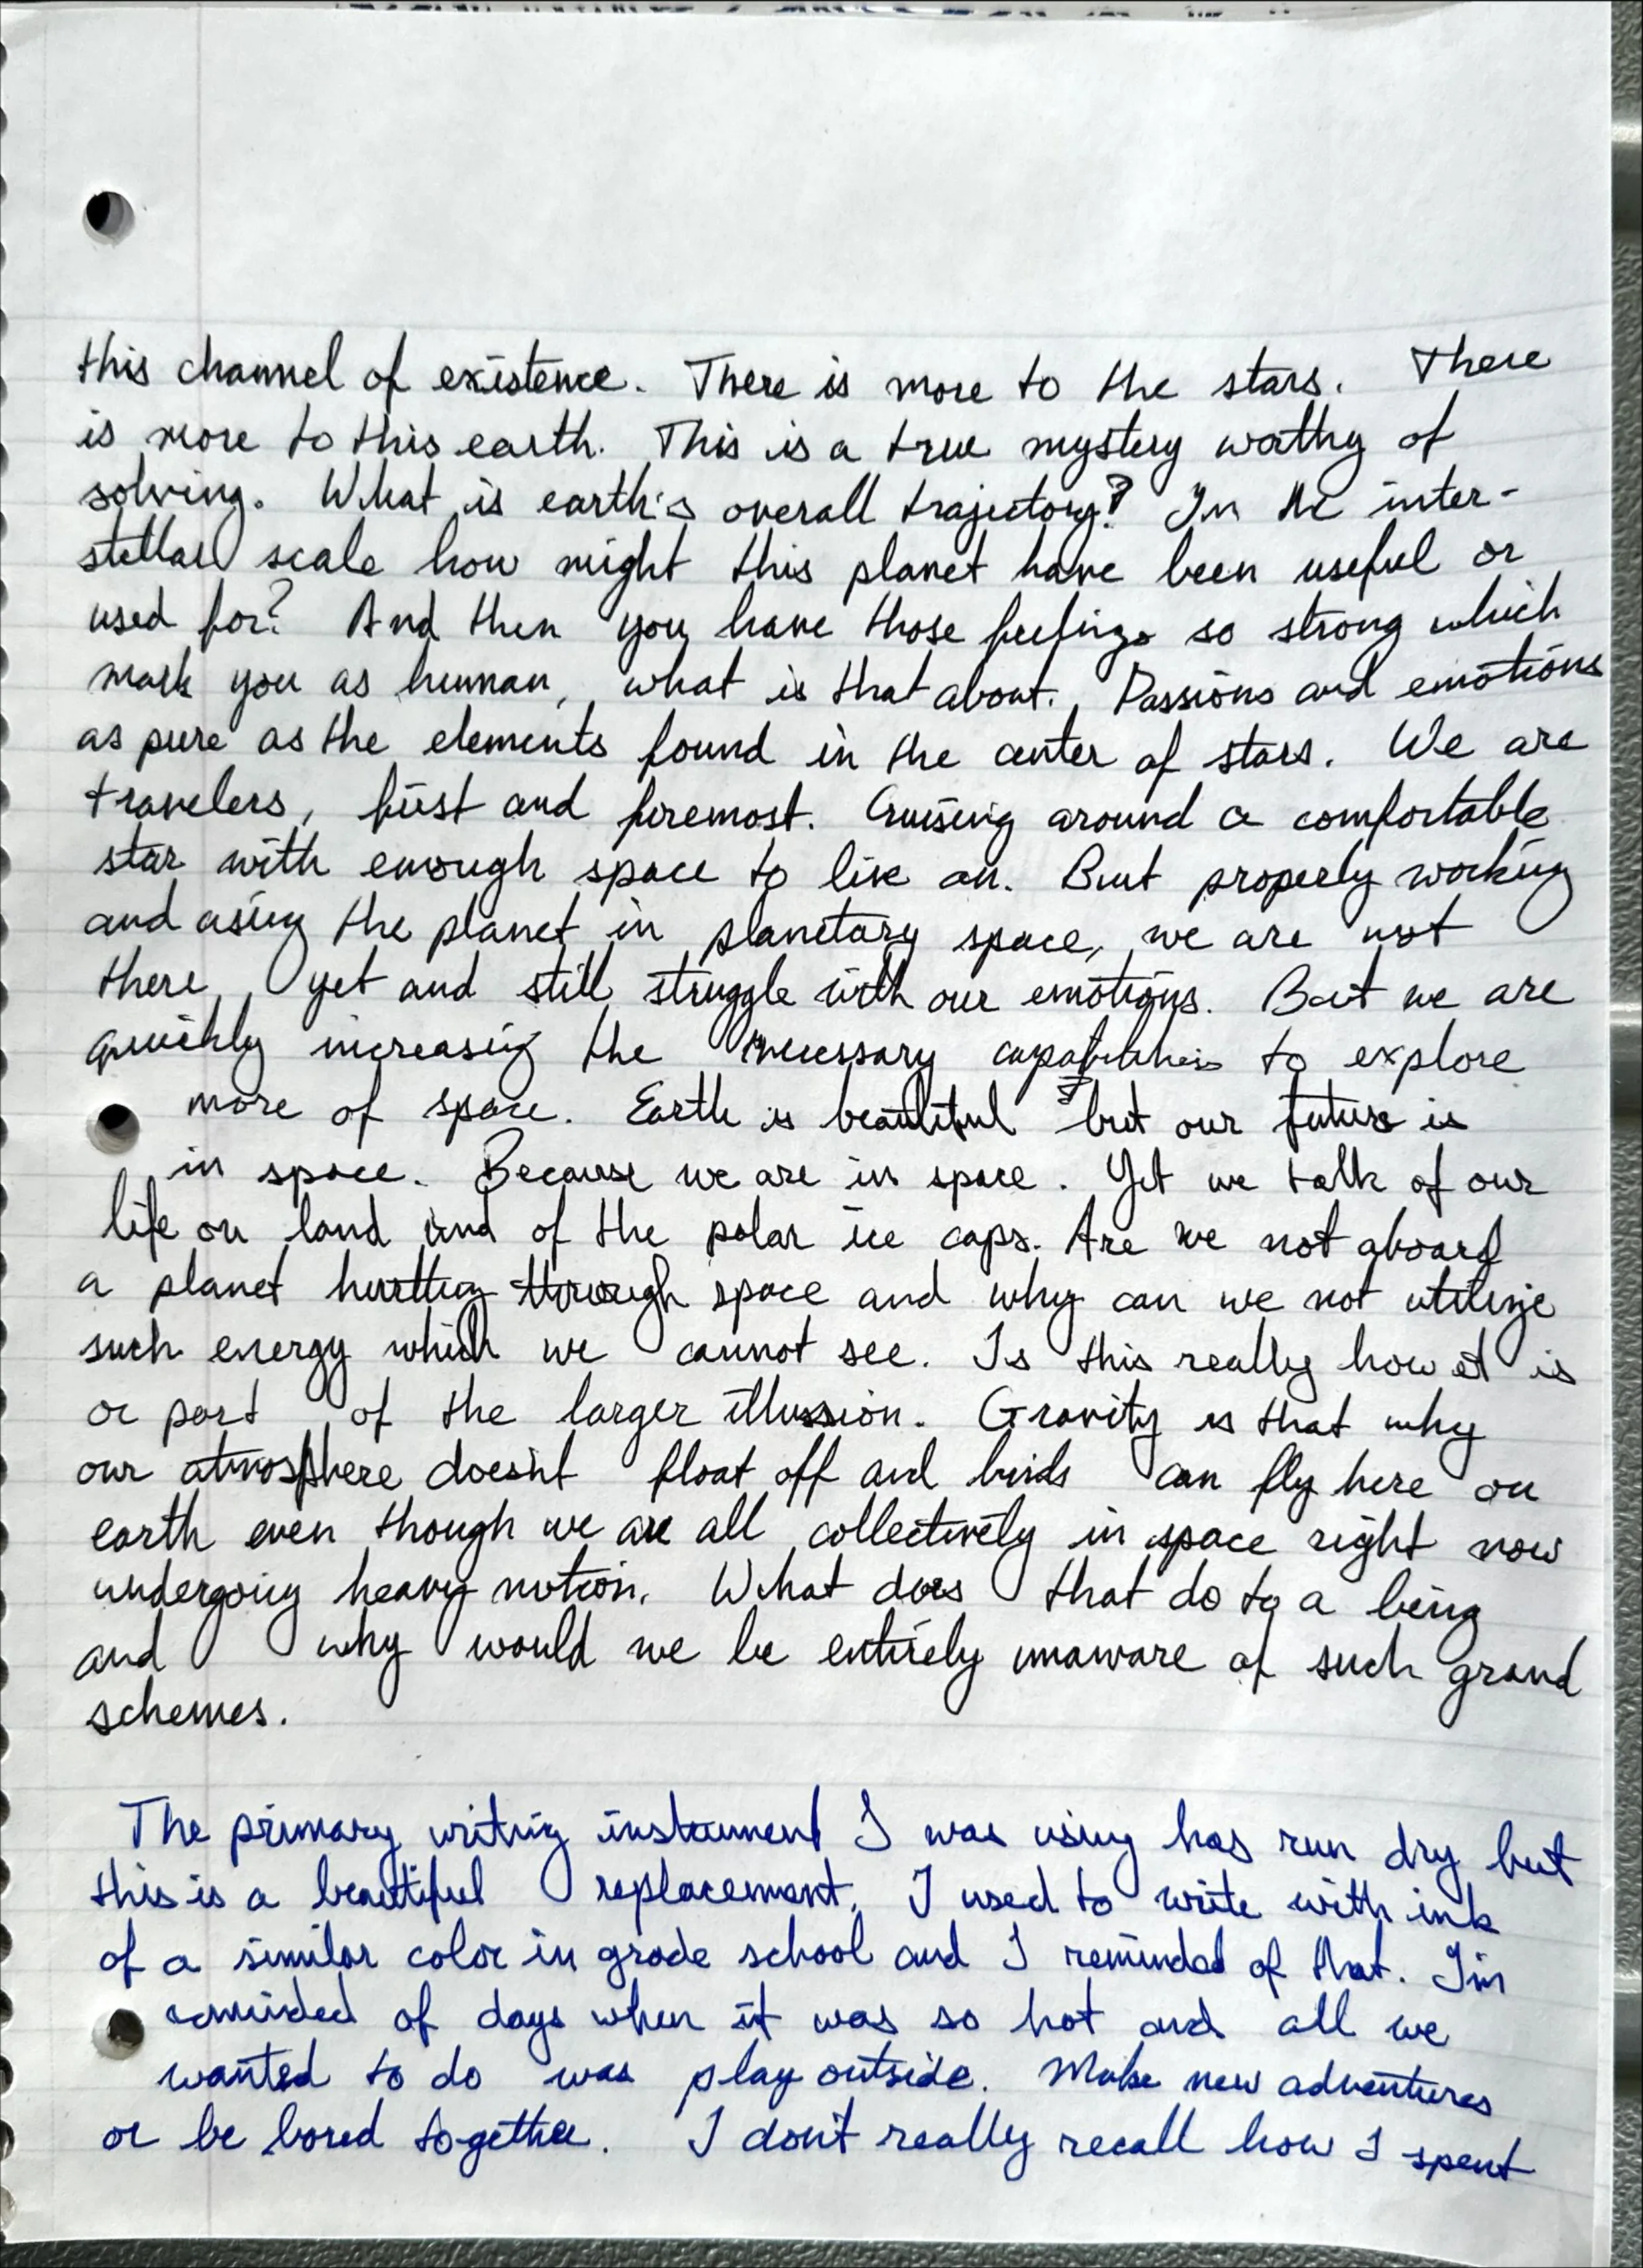 this channel of existence. There is more to the stars. There
is more to this earth. This is a true mystery worthy of
solving. What is earth's overall trajectory? In the inter-
stellar scale how might this planet have been useful or
used for? And then you have those feelings so strong which
mark you as human, what is that about. Passions and emotions
as pure as the elements found in the center of stars. We are
travelers, first and foremost. Cruising around a comfortable
star with enough space to live on. But properly working
and using the planet in planetary space, we are not
there yet and still struggle with our emotions. But we are
quickly increasing the necessary capabilities to explore
more of space. Earth is beautiful but our future is
in space. Because we are in space. Yet we talk of our
life on land and of the polar ice caps. Are we not aboard
a planet hurtling through space and why can we not utilize
such energy which we cannot see. Is this really how it is
or part of the larger illusion. Gravity is that why
our atmosphere doesn't float off and birds can fly here on
earth even though we are all collectively in space right now
undergoing heavy motion. What does that do to a being
and why would we be entirely unaware of such grand
schemes.
The primary writing instrument I was using has run dry but
this is a beautiful replacement. I used to write with ink
of a similar color in grade school and I reminded of that. I'm
reminded of days when it was so hot and all we
wanted to do was play outside. Make new adventures
or be bored together. I don't really recall how I spent